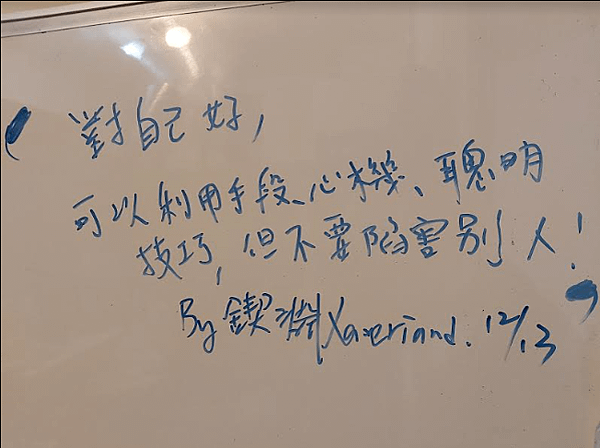 對自己好,
可以利用手段、心機、聰明
技巧,但不要陷害別人!
By 鍥淵 Xaveriand. 12/13